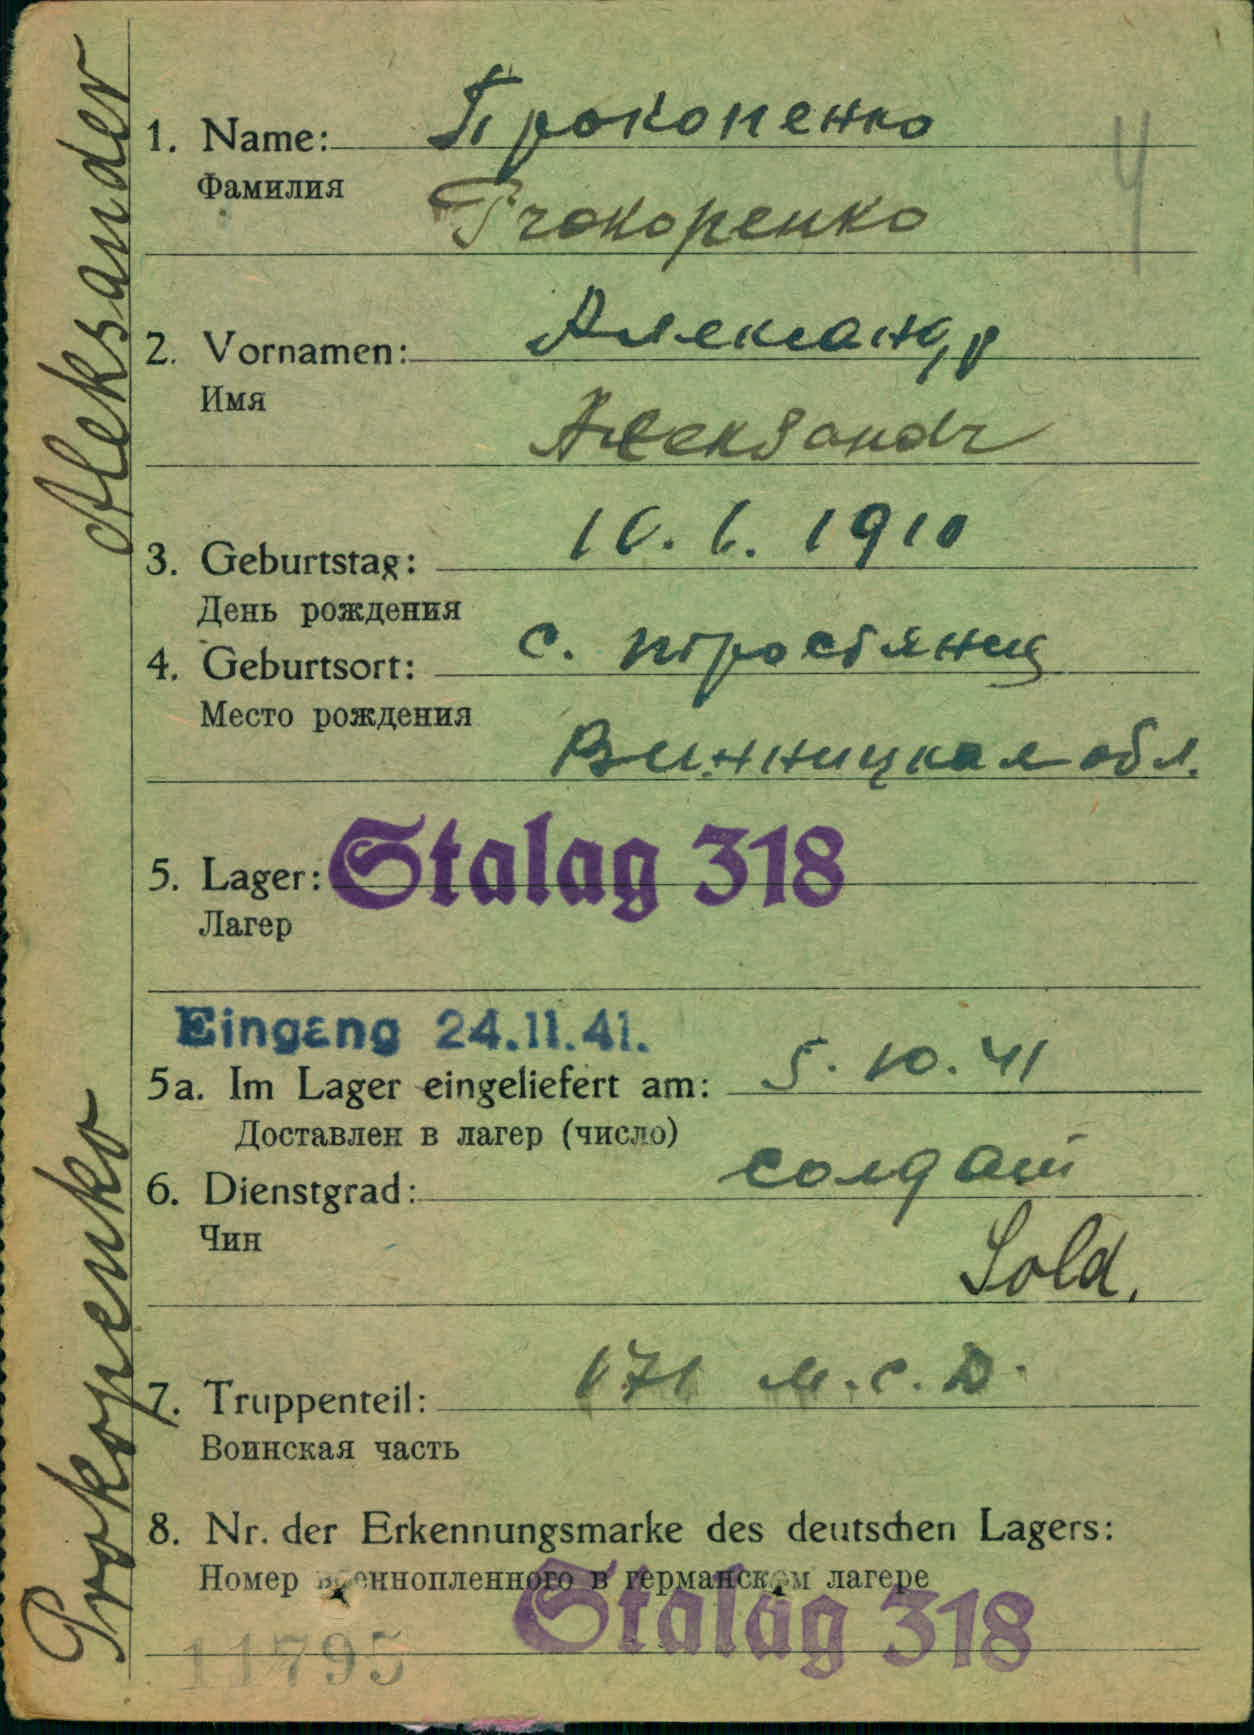 Aleksander
Prokopenko
1. Name: Прокопенко
Фамилия
Prokopenko
2. Vornamen: Александр
Имя
Aleksandr
3. Geburtstag: 1910
День рождения
4. Geburtsort: с. тростянец
Место рождения
Винницкая обл.
5. Lager: Stalag 318
Лагер
Eingang 24.11.41.
5a. Im Lager eingeliefert am: 5.10.41
Доставлен в лагер (число)
6. Dienstgrad: солдат
Чин
Sold.
7. Truppenteil: 171 с. D.
Воинская часть
8. Nr. der Erkennungsmarke des deutschen Lagers:
Номер военнопленного в германском лагере
11795 Stalag 318